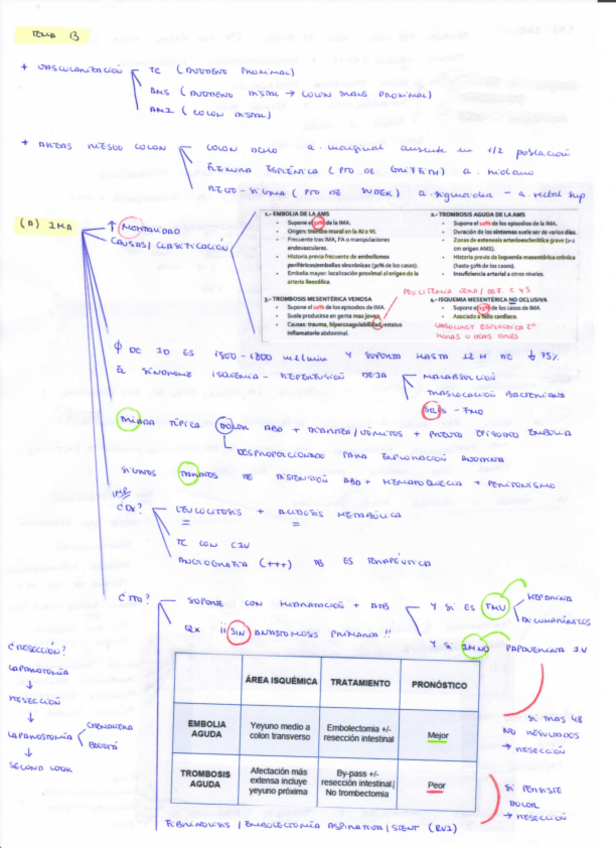 TEMA 13
+ VASCULARIZACIÓN
TC (DUODENO PROXIMAL)
AMS (DUODENO DISTAL → COLON TRANS PROXIMAL)
AMI (COLON DISTAL)
+ AREAS RIESGO COLON
COLON DCHO a. marginal ausente en 1/2 población
FLEXURA ESPLÉNICA (PTO DE GRIFFITH) a. riolano
RECTO-SIGMA (PTO DE SUDEK) a. sigmoidea - a. rectal sup
(A) IMA
↑ MORTALIDAD
CAUSAS/CLASIFICACIÓN
1.- EMBOLIA DE LA AMS
• Supone el 50% de la IMA.
• Origen: trombo mural en la AI o VI.
• Frecuente tras IMA, FA o manipulaciones
endovasculares.
• Historia previa frecuente de embolismos
periféricos/embolias sincrónicas (30% de los casos).
• Embolia mayor: localización proximal al origen de la
arteria ileocólica.
2.- TROMBOSIS AGUDA DE LA AMS
• Supone el 10% de los episodios de la IMA.
• Duración de los síntomas suele ser de varios días.
• Zonas de estenosis arterioesclerótica grave (1-2
cm origen AMS).
• Historia previa de isquemia mesentérica crónica
(hasta 50% de los casos).
• Insuficiencia arterial a otros niveles.
POLICITEMIA VERA / DEF. C Y S
3.- TROMBOSIS MESENTÉRICA VENOSA
• Supone el 10% de los episodios de IMA.
• Suele producirse en gente mas joven.
• Causas: trauma, hipercoagulabilidad, estatus
inflamatorio abdominal.
4.- ISQUEMIA MESENTÉRICA NO OCLUSIVA
• Supone el 25% de los casos de IMA
• Asociado a fallo cardiaco.
VASOCONST ESPLÁCNICA 2ª
HORAS U OCAS DÍAS
Ø DE ID ES 1500-1800 ml/min Y SOPORTA HASTA 12 H DE ↓ 75%
EL SÍNDROME ISQUEMIA-REPERFUSIÓN DEJA
MALABSORCIÓN
TRASLOCACIÓN BACTERIANA
SRIS - FMO
TRIADA TÍPICA DOLOR ABD + DIARREA/VÓMITOS + PREVIO EPISODIO EMBOLIA
DESPROPORCIONADO PARA EXPLORACIÓN ANODINA
SIGNOS TARDÍOS DE DISTENSIÓN ABD + HEMATOQUECIA + PERITONISMO
IMP
¿DX?
LEUCOCITOSIS + ACIDOSIS METABÓLICA
TC CON CIV
ANGIOGRAFIA (+++) TB ES TERAPÉUTICA
¿TTO?
SOPORTE CON HIDRATACIÓN + ATB
Y SI ES TMV
HEPARINA
DICUMARÍNICOS
Y SI IMNO PAPAVERINA IV
QX ¡¡ SIN ANASTOMOSIS PRIMARIA !!
¿RESECCIÓN?
LAPAROTOMÍA
↓
RESECCIÓN
↓
LAPAROSTOMÍA
CREMALLERA
BOGOTÁ
↓
SECOND LOOK
ÁREA ISQUÉMICA TRATAMIENTO PRONÓSTICO
EMBOLIA AGUDA
Yeyuno medio a colon transverso
Embolectomia +/- resección intestinal
Mejor
TROMBOSIS AGUDA
Afectación más extensa incluye yeyuno próxima
By-pass +/- resección intestinal
No trombectomia
Peor
SI MAS 48
NO RESULTADOS
→ RESECCIÓN
SI PERSISTE
DOLOR
→ RESECCIÓN
FIBRINOLISIS / EMBOLECTOMÍA ASPIRATIVA / STENT (RVI)